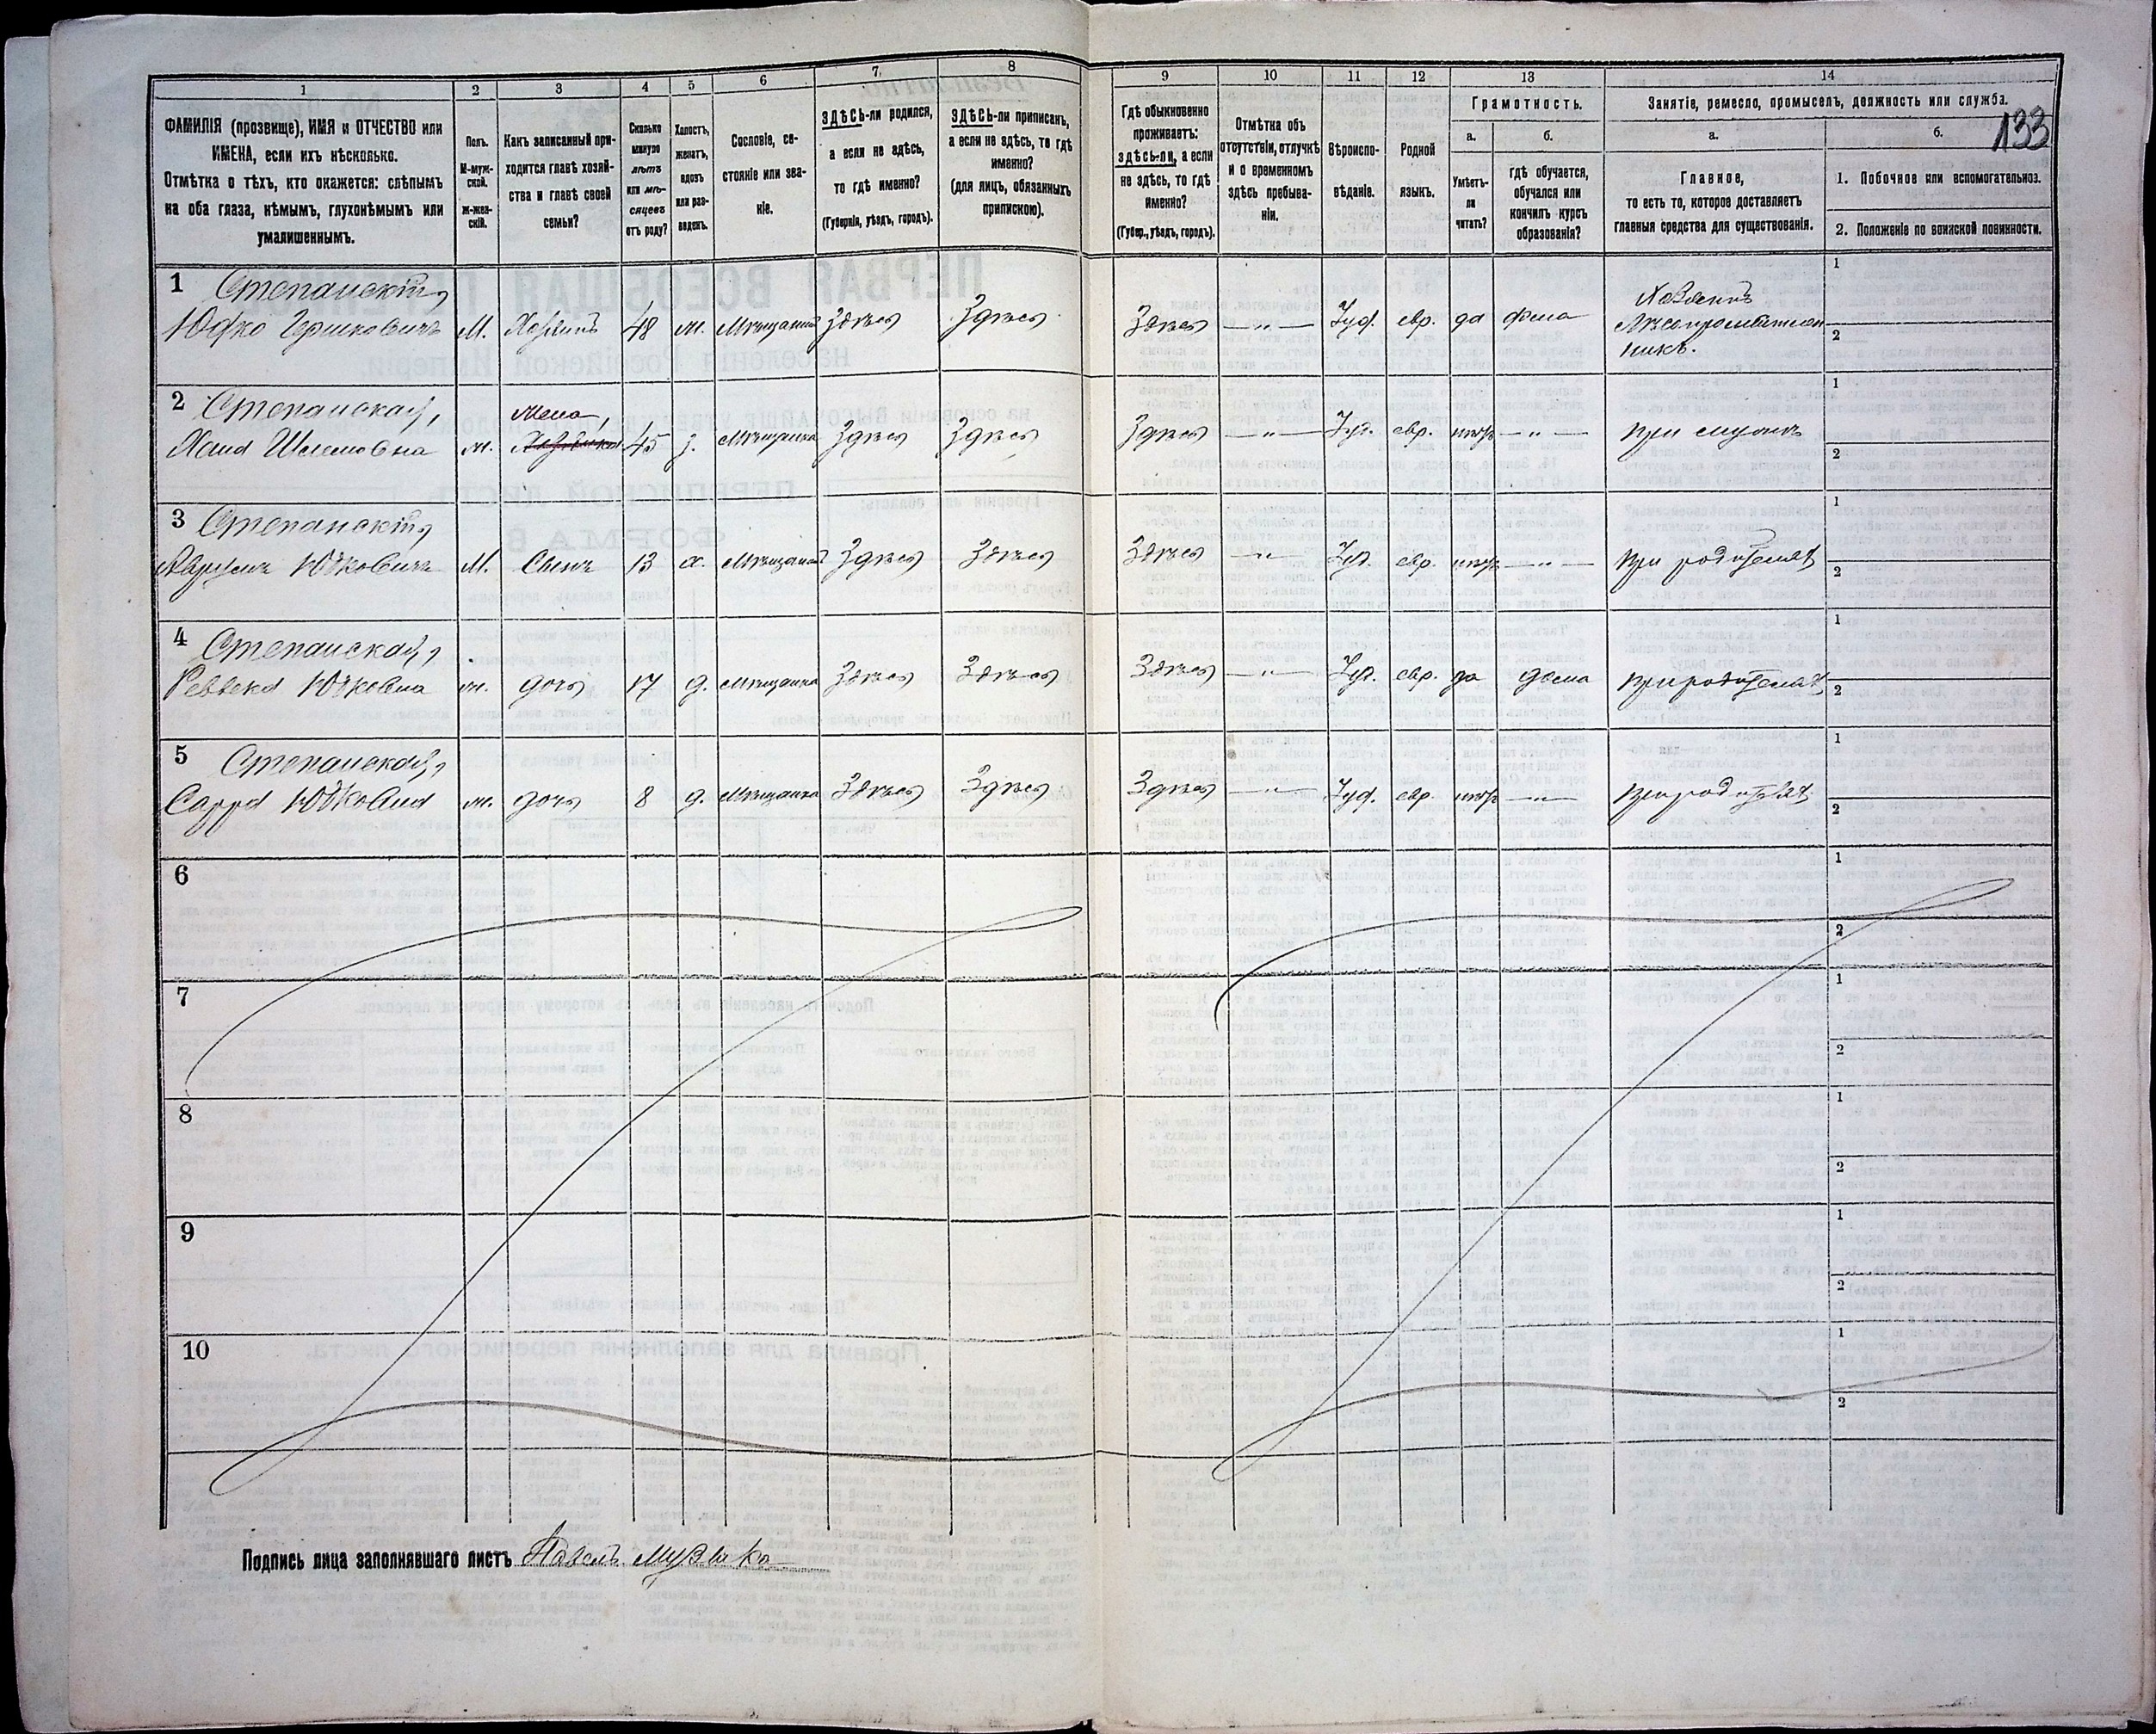 1
2
3
4
5
6
7
8
9
10
11
12
13
14
133
ФАМИЛІЯ (прозвище), ИМЯ и ОТЧЕСТВО или
ИМЕНА, если ихъ нѣсколько.
Отмѣтка о тѣхъ, кто окажется: слѣпымъ
на оба глаза, нѣмымъ, глухонѣмымъ или
умалишеннымъ.
Полъ.
М-муж-
ской.
Ж-жен-
скій.
Какъ записанный при-
ходится главѣ хозяй-
ства и главѣ своей
семьи?
Сколько
минуло
лѣтъ
или мѣ-
сяцевъ
отъ роду?
Холостъ,
женатъ,
вдовъ
или раз-
веденъ.
Сословіе, со-
стояніе или зва-
ніе.
ЗДѢСЬ-ли родился,
а если не здѣсь,
то гдѣ именно?
(Губернія, уѣздъ, городъ).
ЗДѢСЬ-ли приписанъ,
а если не здѣсь, то гдѣ
именно?
(для лицъ, обязанныхъ
припискою).
Гдѣ обыкновенно
проживаетъ:
здѣсь-ли, а если
не здѣсь, то гдѣ
именно?
(Губер., уѣздъ, городъ).
Отмѣтка объ
отсутствіи, отлучкѣ
и о временномъ
здѣсь пребыва-
ніи.
Вѣроиспо-
вѣданіе.
Родной
языкъ.
Грамотность.
а.
Умѣетъ-
ли
читать?
б.
гдѣ обучается,
обучался или
кончилъ курсъ
образованія?
Занятіе, ремесло, промыселъ, должность или служба.
а.
Главное,
то есть то, которое доставляетъ
главныя средства для существованія.
б.
1. Побочное или вспомогательное.
2. Положеніе по воинской повинности.
1 Степанскій,
Юфко Гершковичъ М. Хозяинъ 48 ж. Мѣщанинъ Здѣсь Здѣсь Здѣсь — „ — Іуд. евр. да дома Хозяинъ
1
2
2 Степанская,
Хана Шлемовна ж. жена, 45 з. Мѣщанка Здѣсь Здѣсь Здѣсь — „ — Іуд. евр. нѣтъ — „ — при мужѣ
1
2
3 Степанскій,
Юфковичъ М. Сынъ 13 х. Мѣщанинъ Здѣсь Здѣсь Здѣсь — „ — Іуд. евр. нѣтъ — „ — при родителяхъ
1
2
4 Степанская,
Ревекка Юфковна ж. дочь 17 д. мѣщанка Здѣсь Здѣсь Здѣсь — „ — Іуд. евр. да дома при родителяхъ
1
2
5 Степанская,
Сарра Юфковна ж. дочь 8 д. Мѣщанка Здѣсь Здѣсь Здѣсь — „ — Іуд. евр. нѣтъ — „ — при родителяхъ
1
2
6
1
2
7
1
2
8
1
2
9
1
2
10
1
2
Подпись лица заполнявшаго листъ Павелъ